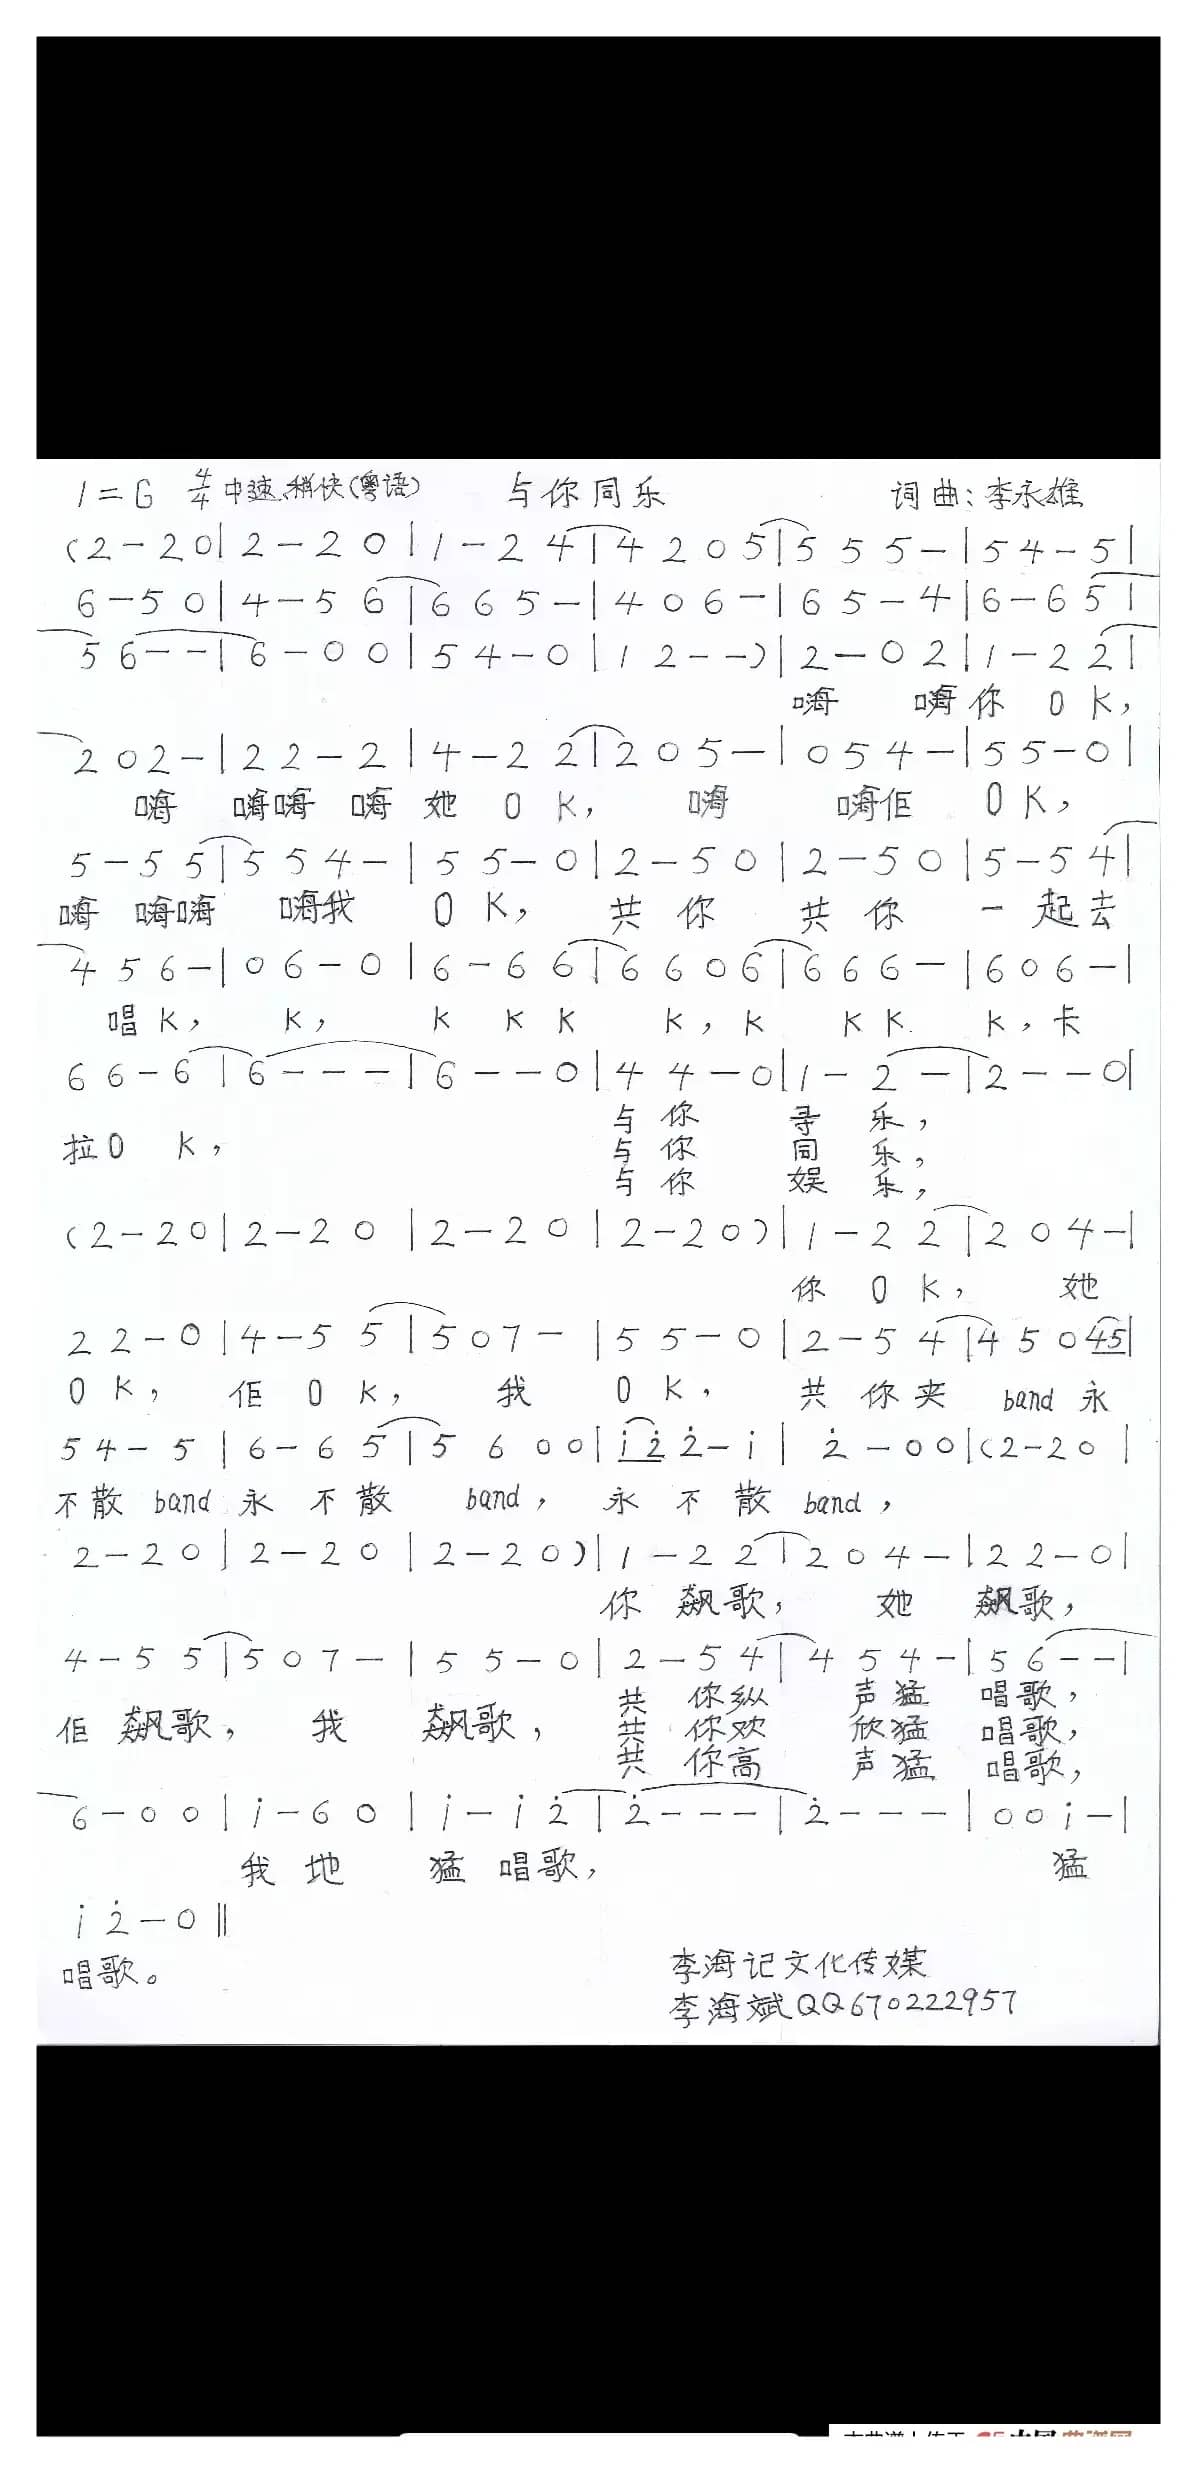 1=G 4/4 中速.稍快(粤语) 与你同乐 词曲:李永雄
(2-20|2-20|1-24|4205|555-|54-5|
6-50|4-56|665-|406-|65-4|6-65|
56--|6-00|54-0|12--)|2-02|1-22|
嗨 嗨你 O K,
202-|22-2|4-22|205-|054-|55-0|
嗨 嗨嗨 嗨她 O K, 嗨 嗨佢 O K,
5-55|554-|55-0|2-50|2-50|5-54|
嗨 嗨嗨 嗨我 O K, 共 你 共 你 一起去
456-|06-0|6-66|6606|666-|606-|
唱K, K, K K K K, K K K. K,卡
66-6|6---|6--0|44-0|1-2-|2--0|
与你 寻 乐,
拉O K, 与你 同 乐,
与你 娱 乐,
(2-20|2-20|2-20|2-20)|1-22|204-|
你 O K, 她
22-0|4-55|507-|55-0|2-54|45045|
O K, 佢 O K, 我 O K, 共 你夹 band永
54-5|6-65|5600|i̇2̇2̇-i̇|2̇-00|(2-20|
不散 band永 不散 band, 永 不 散 band,
2-20|2-20|2-20)|1-22|204-|22-0|
你 飙歌, 她 飙歌,
4-55|507-|55-0|2-54|454-|56--|
共 你纵 声猛 唱歌,
佢 飙歌, 我 飙歌, 共 你欢 欣猛 唱歌,
共 你高 声猛 唱歌,
6-00|i̇-60|i̇-i̇2̇|2̇---|2̇---|00i̇-|
我 地 猛 唱歌, 猛
i̇2̇-0‖
唱歌。
李海记文化传媒
李海斌QQ670222957